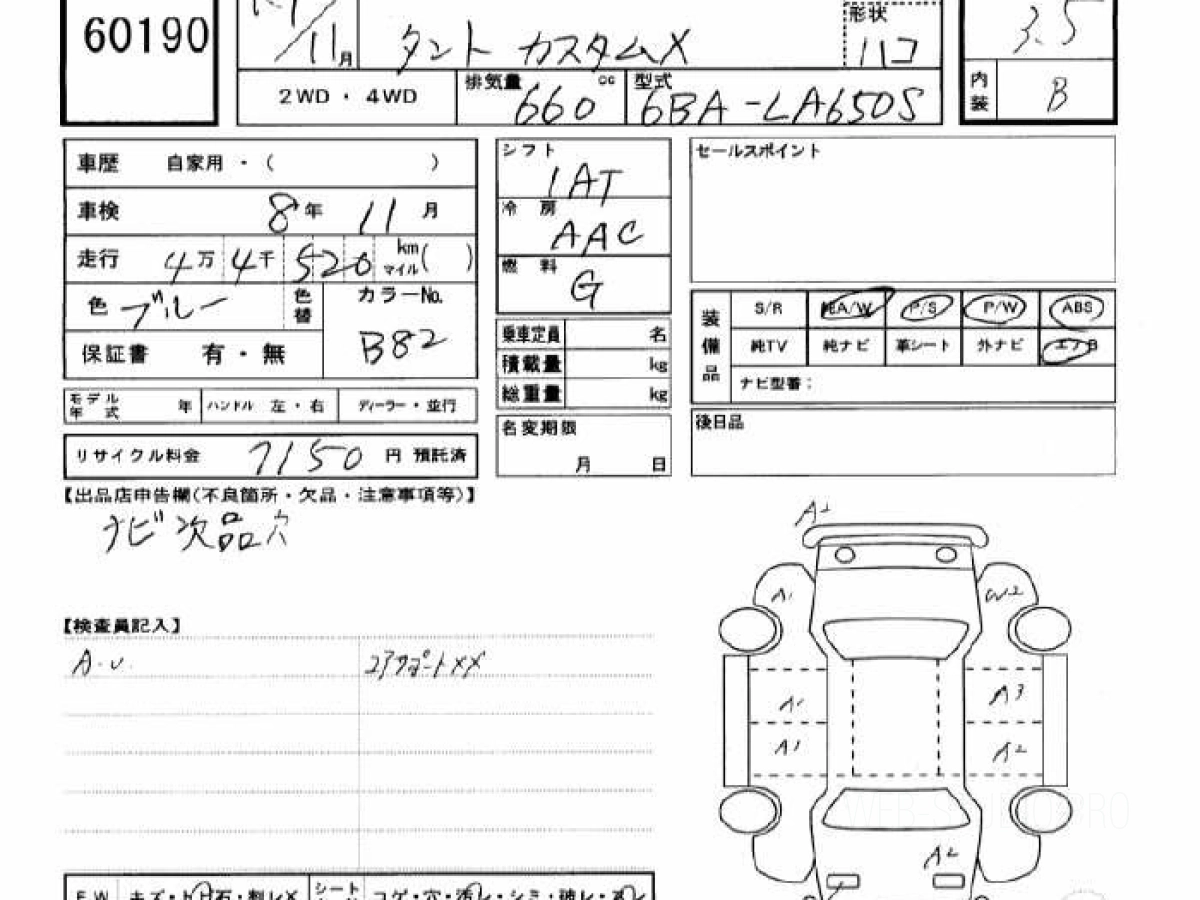 60190
11月
タント カスタムX
形状
ハコ
3.5
2WD・4WD
排気量
660
cc
型式
6BA-LA650S
内装
B
車歴 自家用・( )
車検 8年 11月
走行 4万 4千 520 km マイル( )
色 ブルー
色替
カラーNo.
B82
保証書 有・無
モデル年式 年
ハンドル 左・右
ディーラー・並行
リサイクル料金 7150 円 預託済
シフト
IAT
冷房
AAC
燃料
G
乗車定員 名
積載量 kg
総重量 kg
名変期限
月 日
セールスポイント
装備品
S/R EA/W P/S P/W ABS
純TV 純ナビ 革シート 外ナビ エアB
ナビ型番:
後日品
【出品店申告欄(不良箇所・欠品・注意事項等)】
ナビ欠品穴
【検査員記入】
A.U.
エアクポートXX
A2
A1
W2
A1
A3
A1
A2
A2
WEB-
F.W キズ・トビ石・割レX
シート
コゲ・穴・汚レ・シミ・破レ・スレ